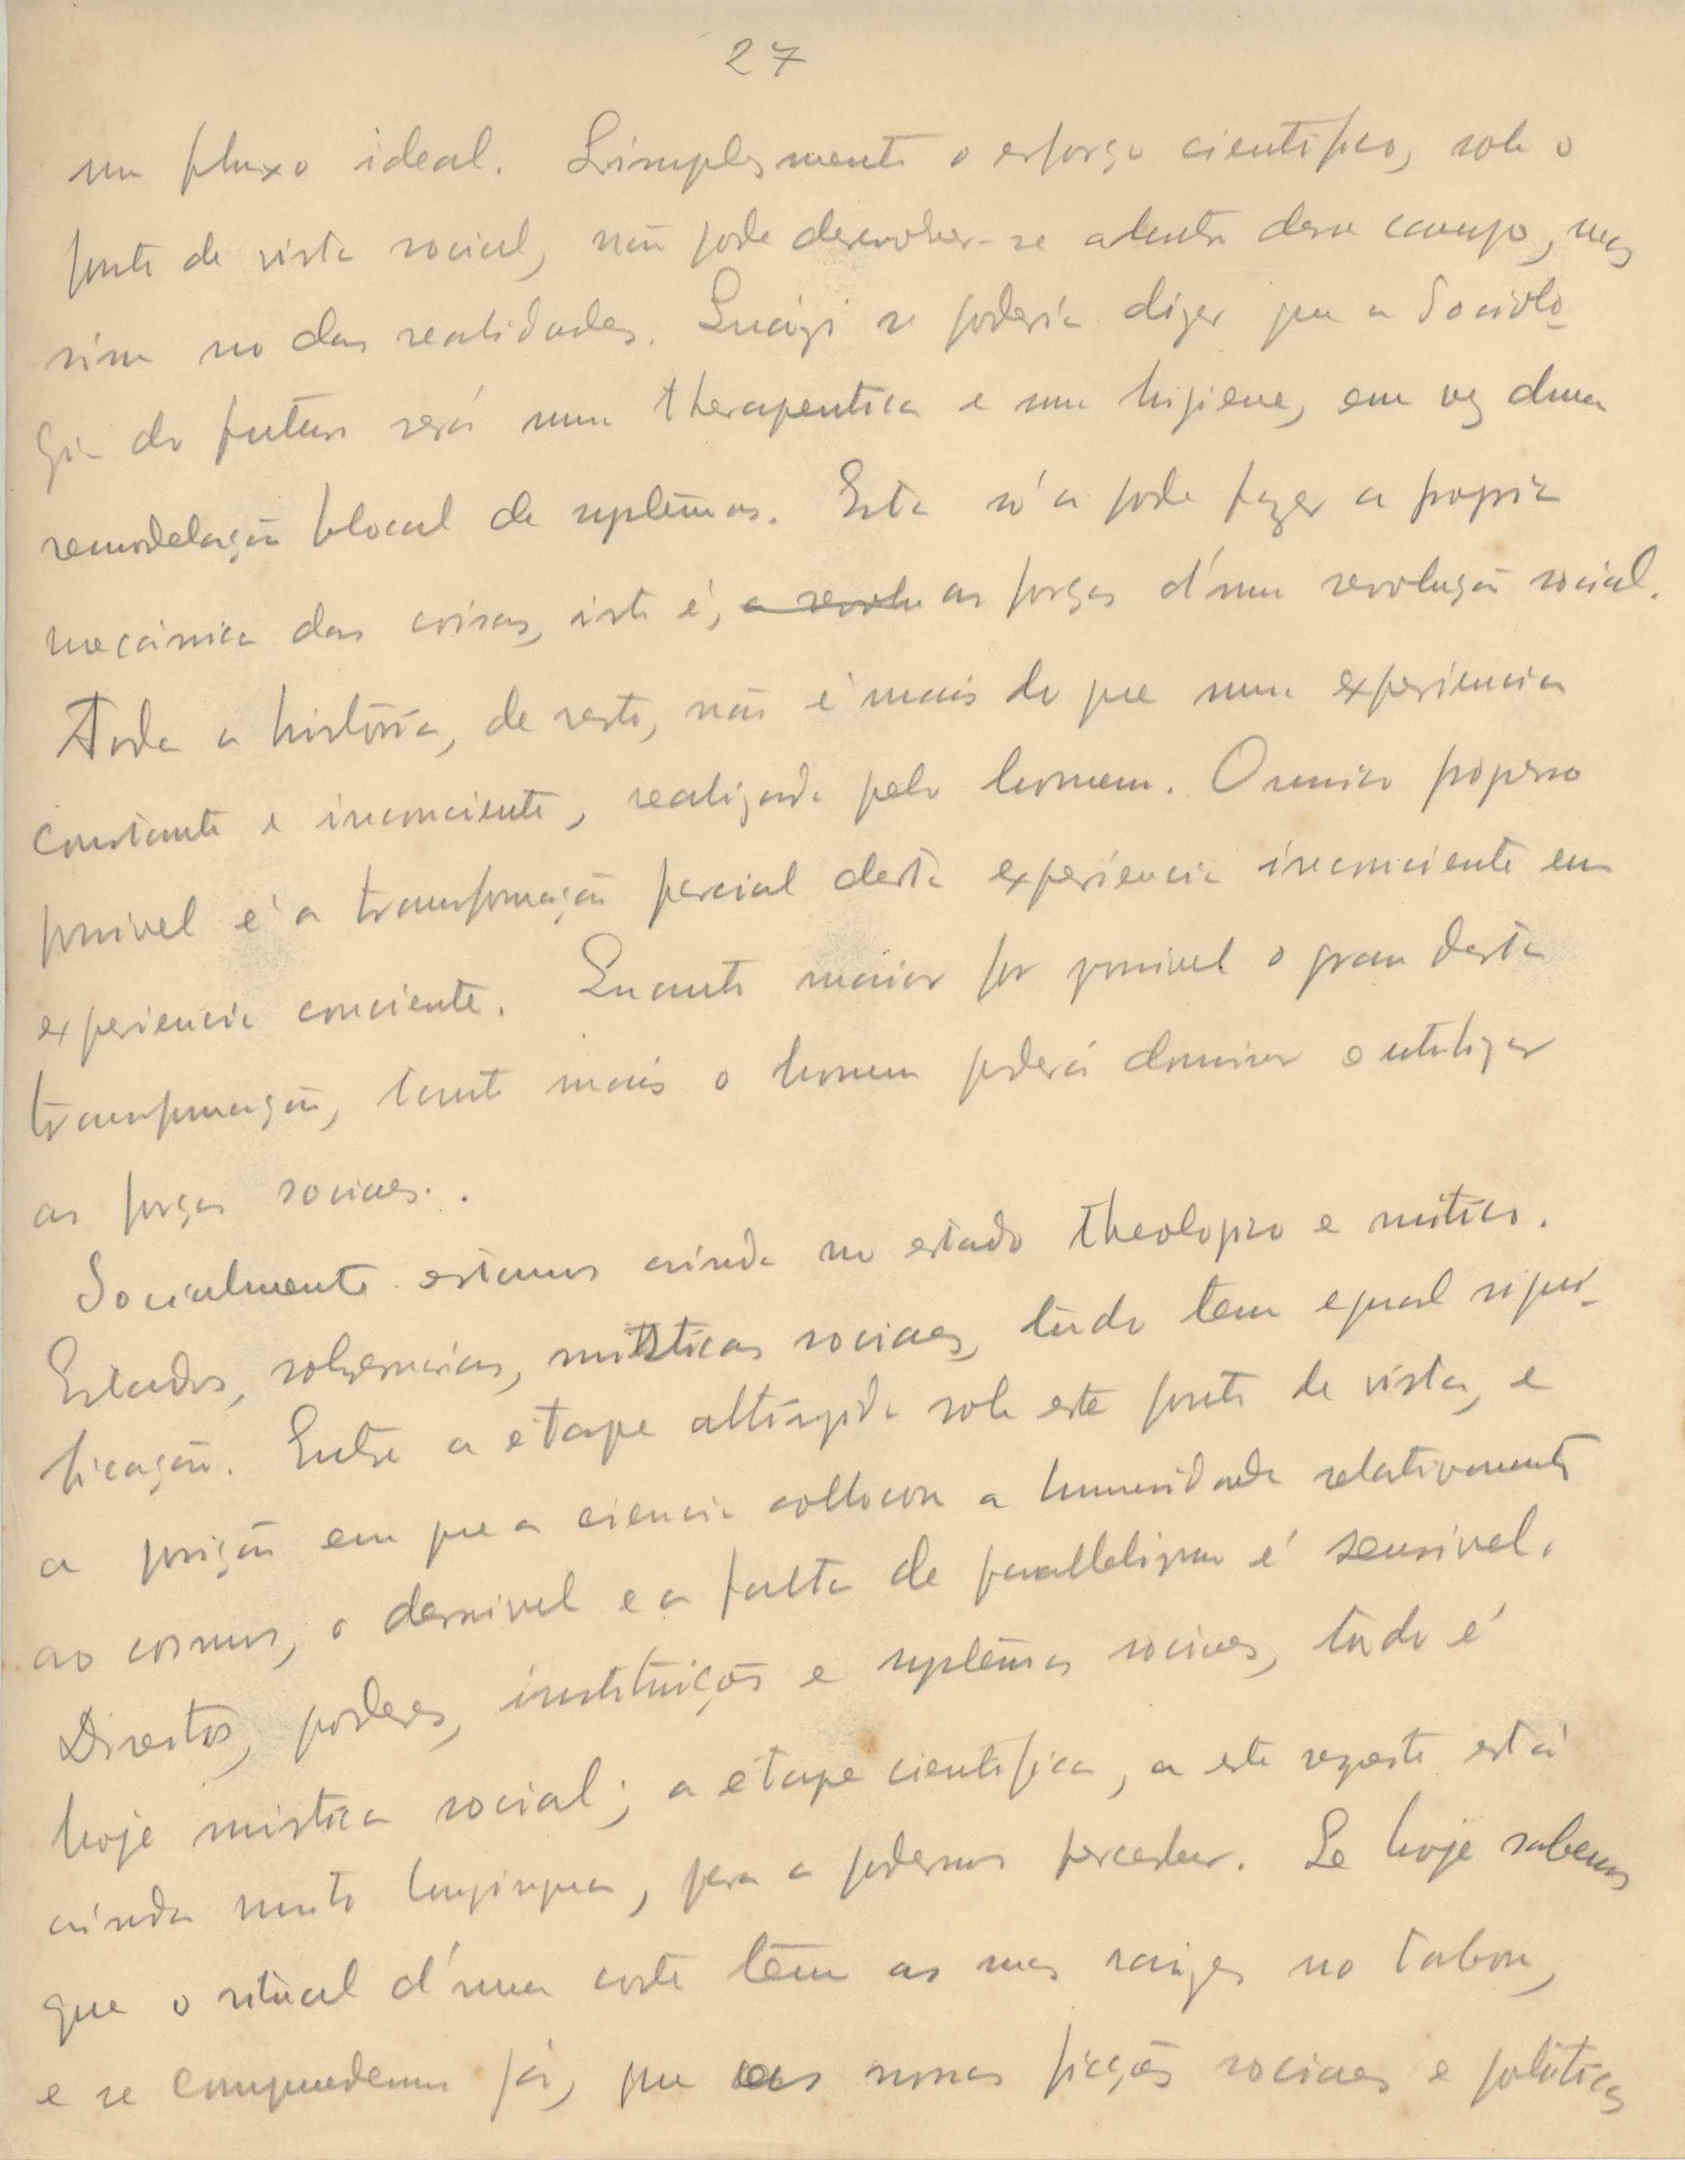 27
um fluxo ideal. Simplesmente o esforço cientifico, sob o
ponto de vista social, não pode desenvolver-se adentro desse campo, mas
sim no das realidades. Quázi se poderia dizer que a Sociolo-
gia do futuro será uma therapeutica e uma higiene, em vez duma
remodelação blocal de systêmas. Esta só a pode fazer a propria
mecánica das coisas, isto é, a revolu as forças d'uma revolução social.
Toda a história, de resto, não é mais do que uma experiencia
constante e inconciente, realizada pelo homem. O unico progresso
possivel é a transformação parcial desta experiencia inconciente em
experiencia conciente. Quanto maior fôr possivel o grau desta
transformação, tanto mais o homem poderá dominar e utilizar
as forças sociaes.
Socialmente estamos ainda no estado theologico e mitico.
Estados, soberanias, misticas sociaes, tudo tem egual signi-
ficação. Entre a étape attingida sob este ponto de vista, e
a posição em que a ciencia collocou a humanidade relativamente
ao cosmos, o desnivel e a falta de parallelismo é sensivel.
Direitos, poderes, instituições e systêmas sociaes, tudo é
hoje mistica social; a étape cientifica, a este respeito está
ainda muito longinqua, para a podermos perceber. Se hoje sabemos
que o ritual d'uma corte têm as suas raizes no tabou,
e se comprendemos já, que as nossas ficções sociaes e politicas